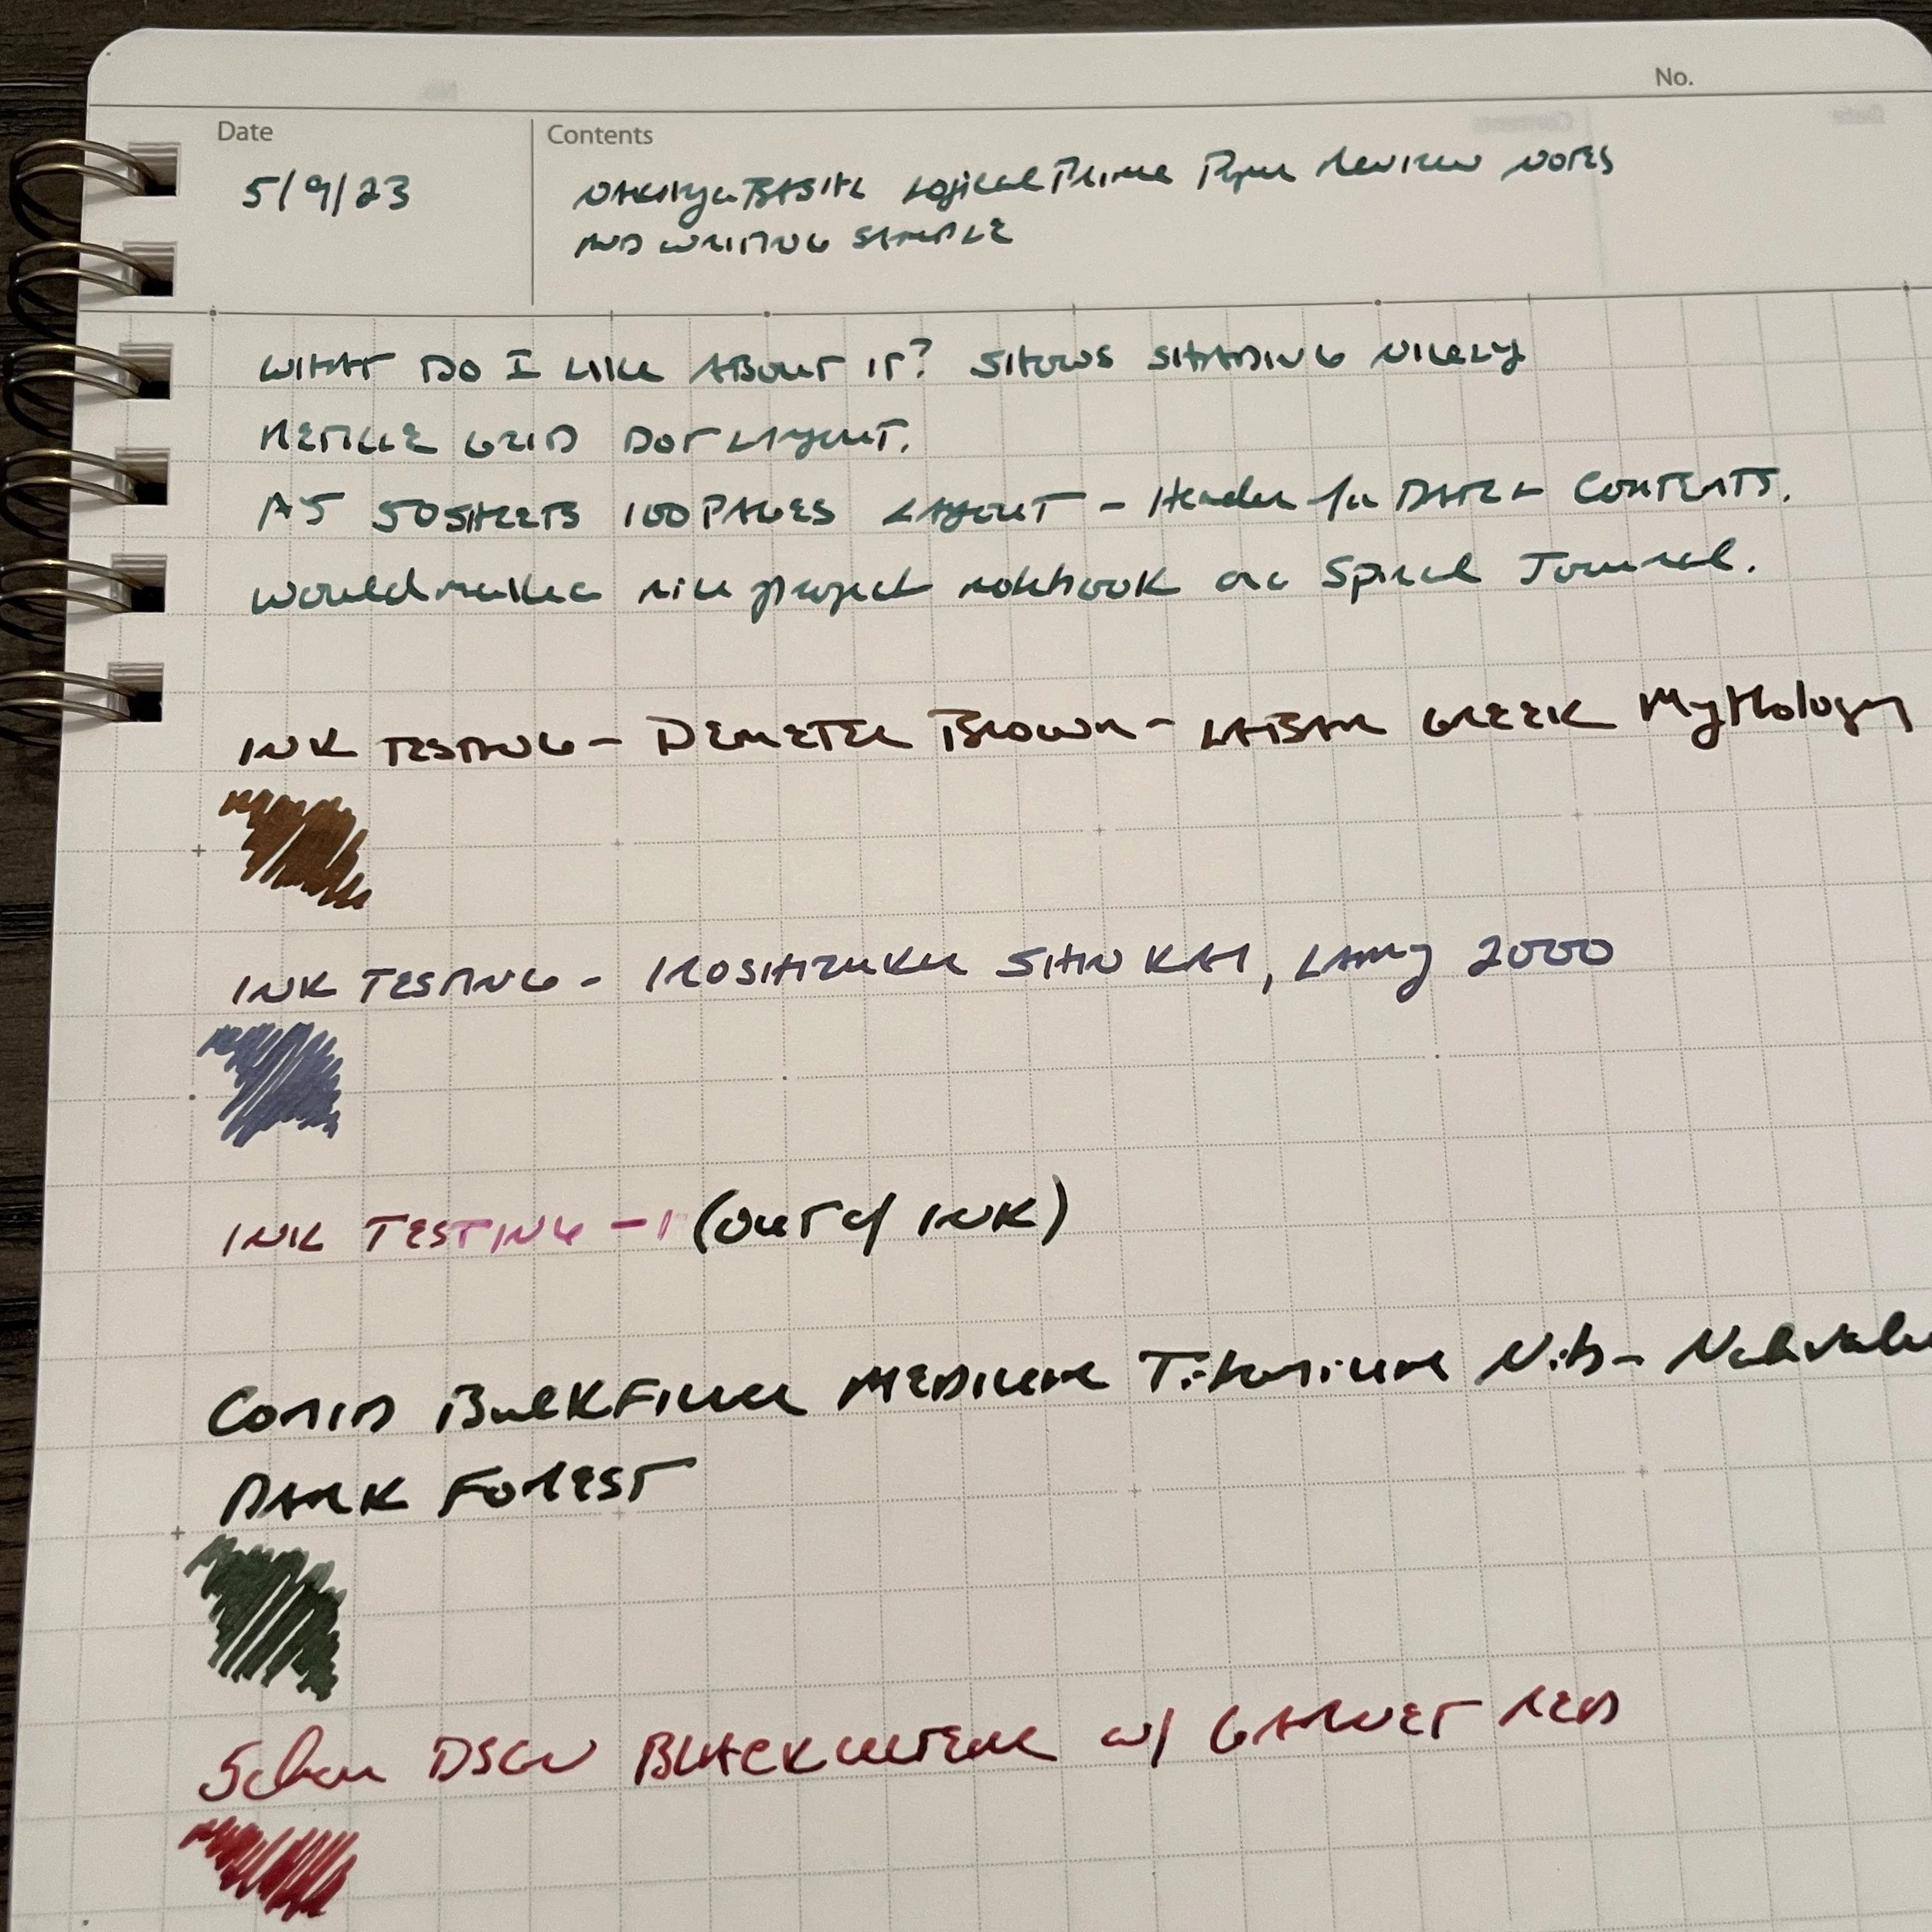 No.
Date
Contents
5/9/23
Nakabayashi Logical Prime Paper Review Notes
AND WRITING SAMPLE
WHAT DO I LIKE ABOUT IT? SHOWS SHADING NICELY
GRID DOT LAYOUT.
A5 50 SHEETS 100 PAGES LAYOUT - Header for DATE & CONTENTS.
Would make a nice project notebook or a Spiral Journal.
INK TESTING - DEMETER BROWN - LABAN GREEK Mythology
INK TESTING - IROSHIZUKU SHIN KAI, LAMY 2000
INK TESTING - (OUT of INK)
CONID BULKFILLER MEDIUM Titanium Nib -
DARK FOREST
Schon DSGN BLACK ULTEM w/ GARNET RED